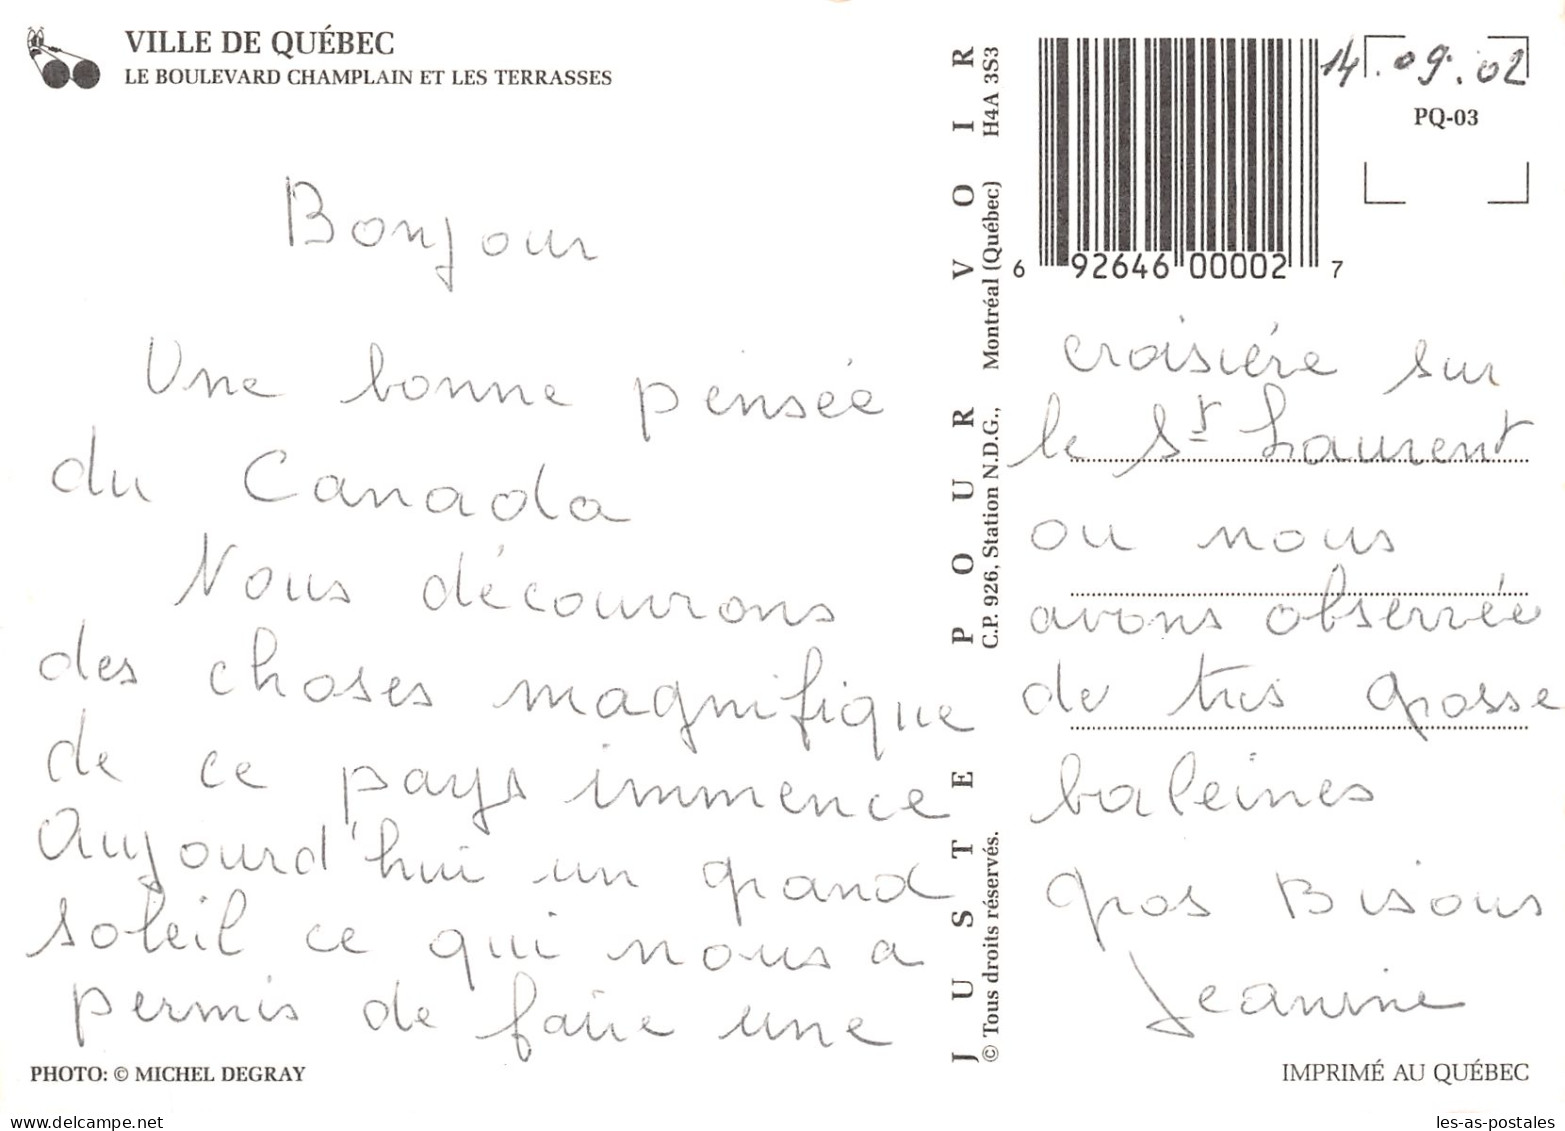 VILLE DE QUÉBEC
LE BOULEVARD CHAMPLAIN ET LES TERRASSES
Bonjour
Une bonne pensée
du Canada
Nous découvrons
des choses magnifique
de ce pays immence
Aujourd'hui un grand
soleil ce qui nous a
permis de faire une
PHOTO: © MICHEL DEGRAY
JUSTE POUR VOIR
© Tous droits réservés. C.P. 926, Station N.D.G., Montréal (Québec) H4A 3S3
6 92646 00002 7
14.09.02
PQ-03
croisière sur
le St Laurent
ou nous
avons observée
de très grosse
baleines
gros Bisous
Jeanine
IMPRIMÉ AU QUÉBEC
les-as-postales
delcampe.net